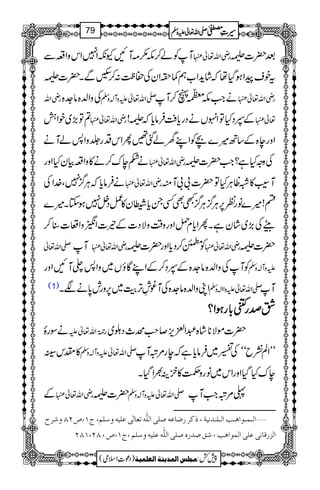 سیرتِ مصطفی صلی اللہ تعالیٰ علیہ وسلم
79
بعد حضرت حلیمہ رضی اللہ تعالیٰ عنہا آپ کو لے کر مکہ مکرمہ آئیں کیونکہ انہیں اس واقعہ سے
یہ خوف پیدا ہو گیا تھا کہ شاید اب ہم کما حقہ ان کی حفاظت نہ کر سکیں گے۔ حضرت حلیمہ
رضی اللہ تعالیٰ عنہا نے جب مکہ معظمہ پہنچ کر آپ صلی اللہ تعالیٰ علیہ وسلم کی والدہ ماجدہ رضی اللہ تعالیٰ عنہا
کے سپرد کیا تو انہوں نے دریافت فرمایا کہ حلیمہ! رضی اللہ تعالیٰ عنہا تم تو بڑی خواہش
اور چاہ کے ساتھ میرے بچے کو اپنے گھر لے گئی تھیں پھر اس قدر جلد واپس لے آنے
کی وجہ کیا ہے؟ جب حضرت حلیمہ رضی اللہ تعالیٰ عنہا نے شکم چاک کرنے کا واقعہ بیان کیا اور
آسیب کا شبہ ظاہر کیا تو حضرت بی بی آمنہ رضی اللہ تعالیٰ عنہا نے فرمایا کہ ہرگز نہیں، خدا کی
قسم! میرے نورِ نظر پر ہرگز ہرگز کبھی بھی کسی جن یا شیطان کا عمل دخل نہیں ہو سکتا۔ میرے
بیٹے کی بڑی شان ہے۔ پھر ایامِ حمل اور وقتِ ولادت کے حیرت انگیز واقعات سنا کر
حضرت حلیمہ رضی اللہ تعالیٰ عنہا کو مطمئن کر دیا اور حضرت حلیمہ رضی اللہ تعالیٰ عنہا آپ صلی اللہ تعالیٰ
علیہ وآلہ وسلم کو آپ کی والدہ ماجدہ کے سپرد کر کے اپنے گاؤں میں واپس چلی آئیں اور
آپ صلی اللہ تعالیٰ علیہ وآلہ وسلم اپنی والدہ ماجدہ کی آغوشِ تربیت میں پرورش پانے لگے۔ (1)
شق صدر کتنی بار ہوا؟
حضرت مولانا شاہ عبدالعزیز صاحب محدث دہلوی رحمۃ اللہ تعالیٰ علیہ نے سورۂ
"الم نشرح" کی تفسیر میں فرمایا ہے کہ چار مرتبہ آپ صلی اللہ تعالیٰ علیہ وآلہ وسلم کا مقدس سینہ
چاک کیا گیا اور اس میں نور و حکمت کا خزینہ بھرا گیا۔
پہلی مرتبہ جب آپ صلی اللہ تعالیٰ علیہ وآلہ وسلم حضرت حلیمہ رضی اللہ تعالیٰ عنہا کے
......المواہب اللدنیۃ ، ذکر رضاعہ صلی اللہ تعالی علیہ وسلم، ج۱، ص۸۲ وشرح
الزرقانی علی المواہب ، شق صدرہ صلی اللہ علیہ وسلم، ج۱، ص ۲۸۰-۲۸۱
پیش کش: مجلس المدینۃ العلمیۃ (دعوتِ اسلامی)